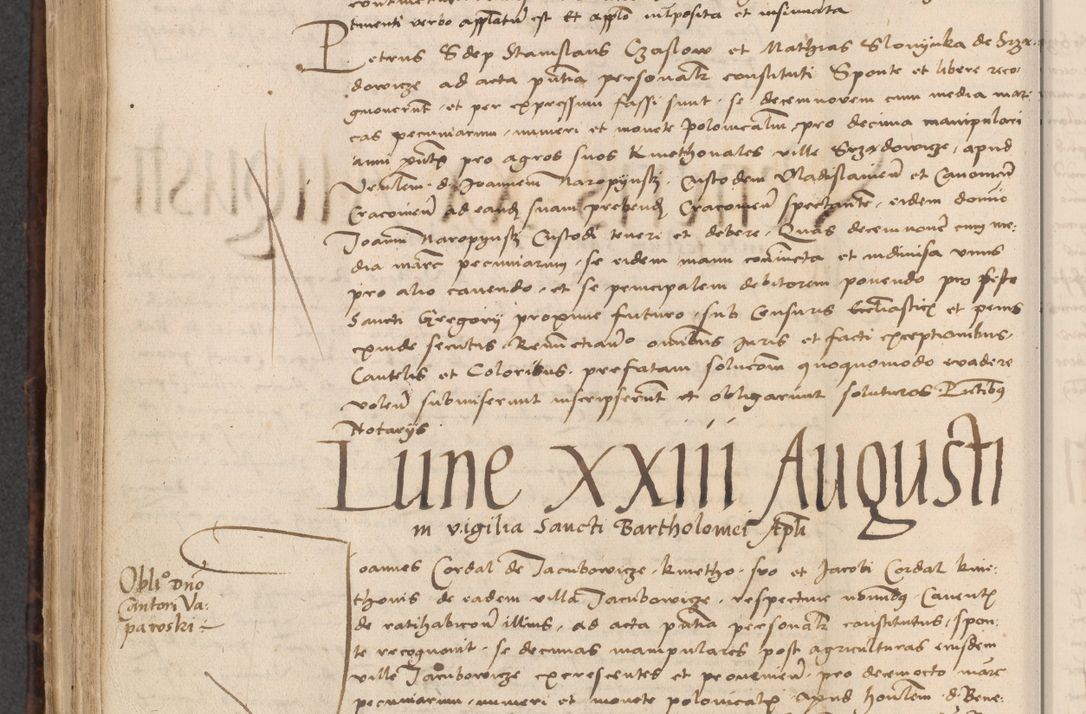 tinenti verbo applatum est Et applo interposita et insinuata
Petrus Sdep Stanislaus Czaslow et Mathias Slonynka de Srza-
dowicze ad acta pntia personalr constituti Sponte et libere reco-
gnoverunt et per expressum fassi sunt se decemnovem cum media mar-
cas pecuniarum numeri et monete polonicalium pro decima manipulari
anni pntis pro agros suos kmethonales ville Srzadowicze, apud
Venlem d. Joannem Naropynski Custodem Vladislavien et Canonicum
Cracovien ad eand suam prebend Cracovien spectante, eidem domino
Joanni Naropynski Custodi teneri et debere. Quas decemnovem cum me-
dia marc pecuniarum se eidem manu coniuncta et indivisa unus
pro alio cavendo et se principalem debitorem ponendo pro festo
Sancti Gregorij proxime futuro sub Censuris Ecclesiasticis et penis
exinde secutis Renunctiando omnibus Juris et facti exceptionibus
Cautelis et Coloribus prefatam solucom quoquomodo evadere
volen submiserunt inscripserunt et obligarunt soluturos Pntibus
Notarijs
Lune XXIII Augusti
in vigilia Sancti Bartholomei Apli
Oblio Dno
Cantori Va-
paroski
Joannes Cordal de Jacubowicze kmetho suo et Jacobi Cordal kme-
thonis de eadem villa Jacubowicze, respective nominibus Caventis
de ratihabicone illius, ad acta pntia personalr constitutus, spon-
te recognovit se decimas manipulares post agriculturas eiusdem
ville Jacubowicze excrescentes et provenien pro decemocto marc
pecuniarum numeri et monete polonicalis apud honlem d. Bene-